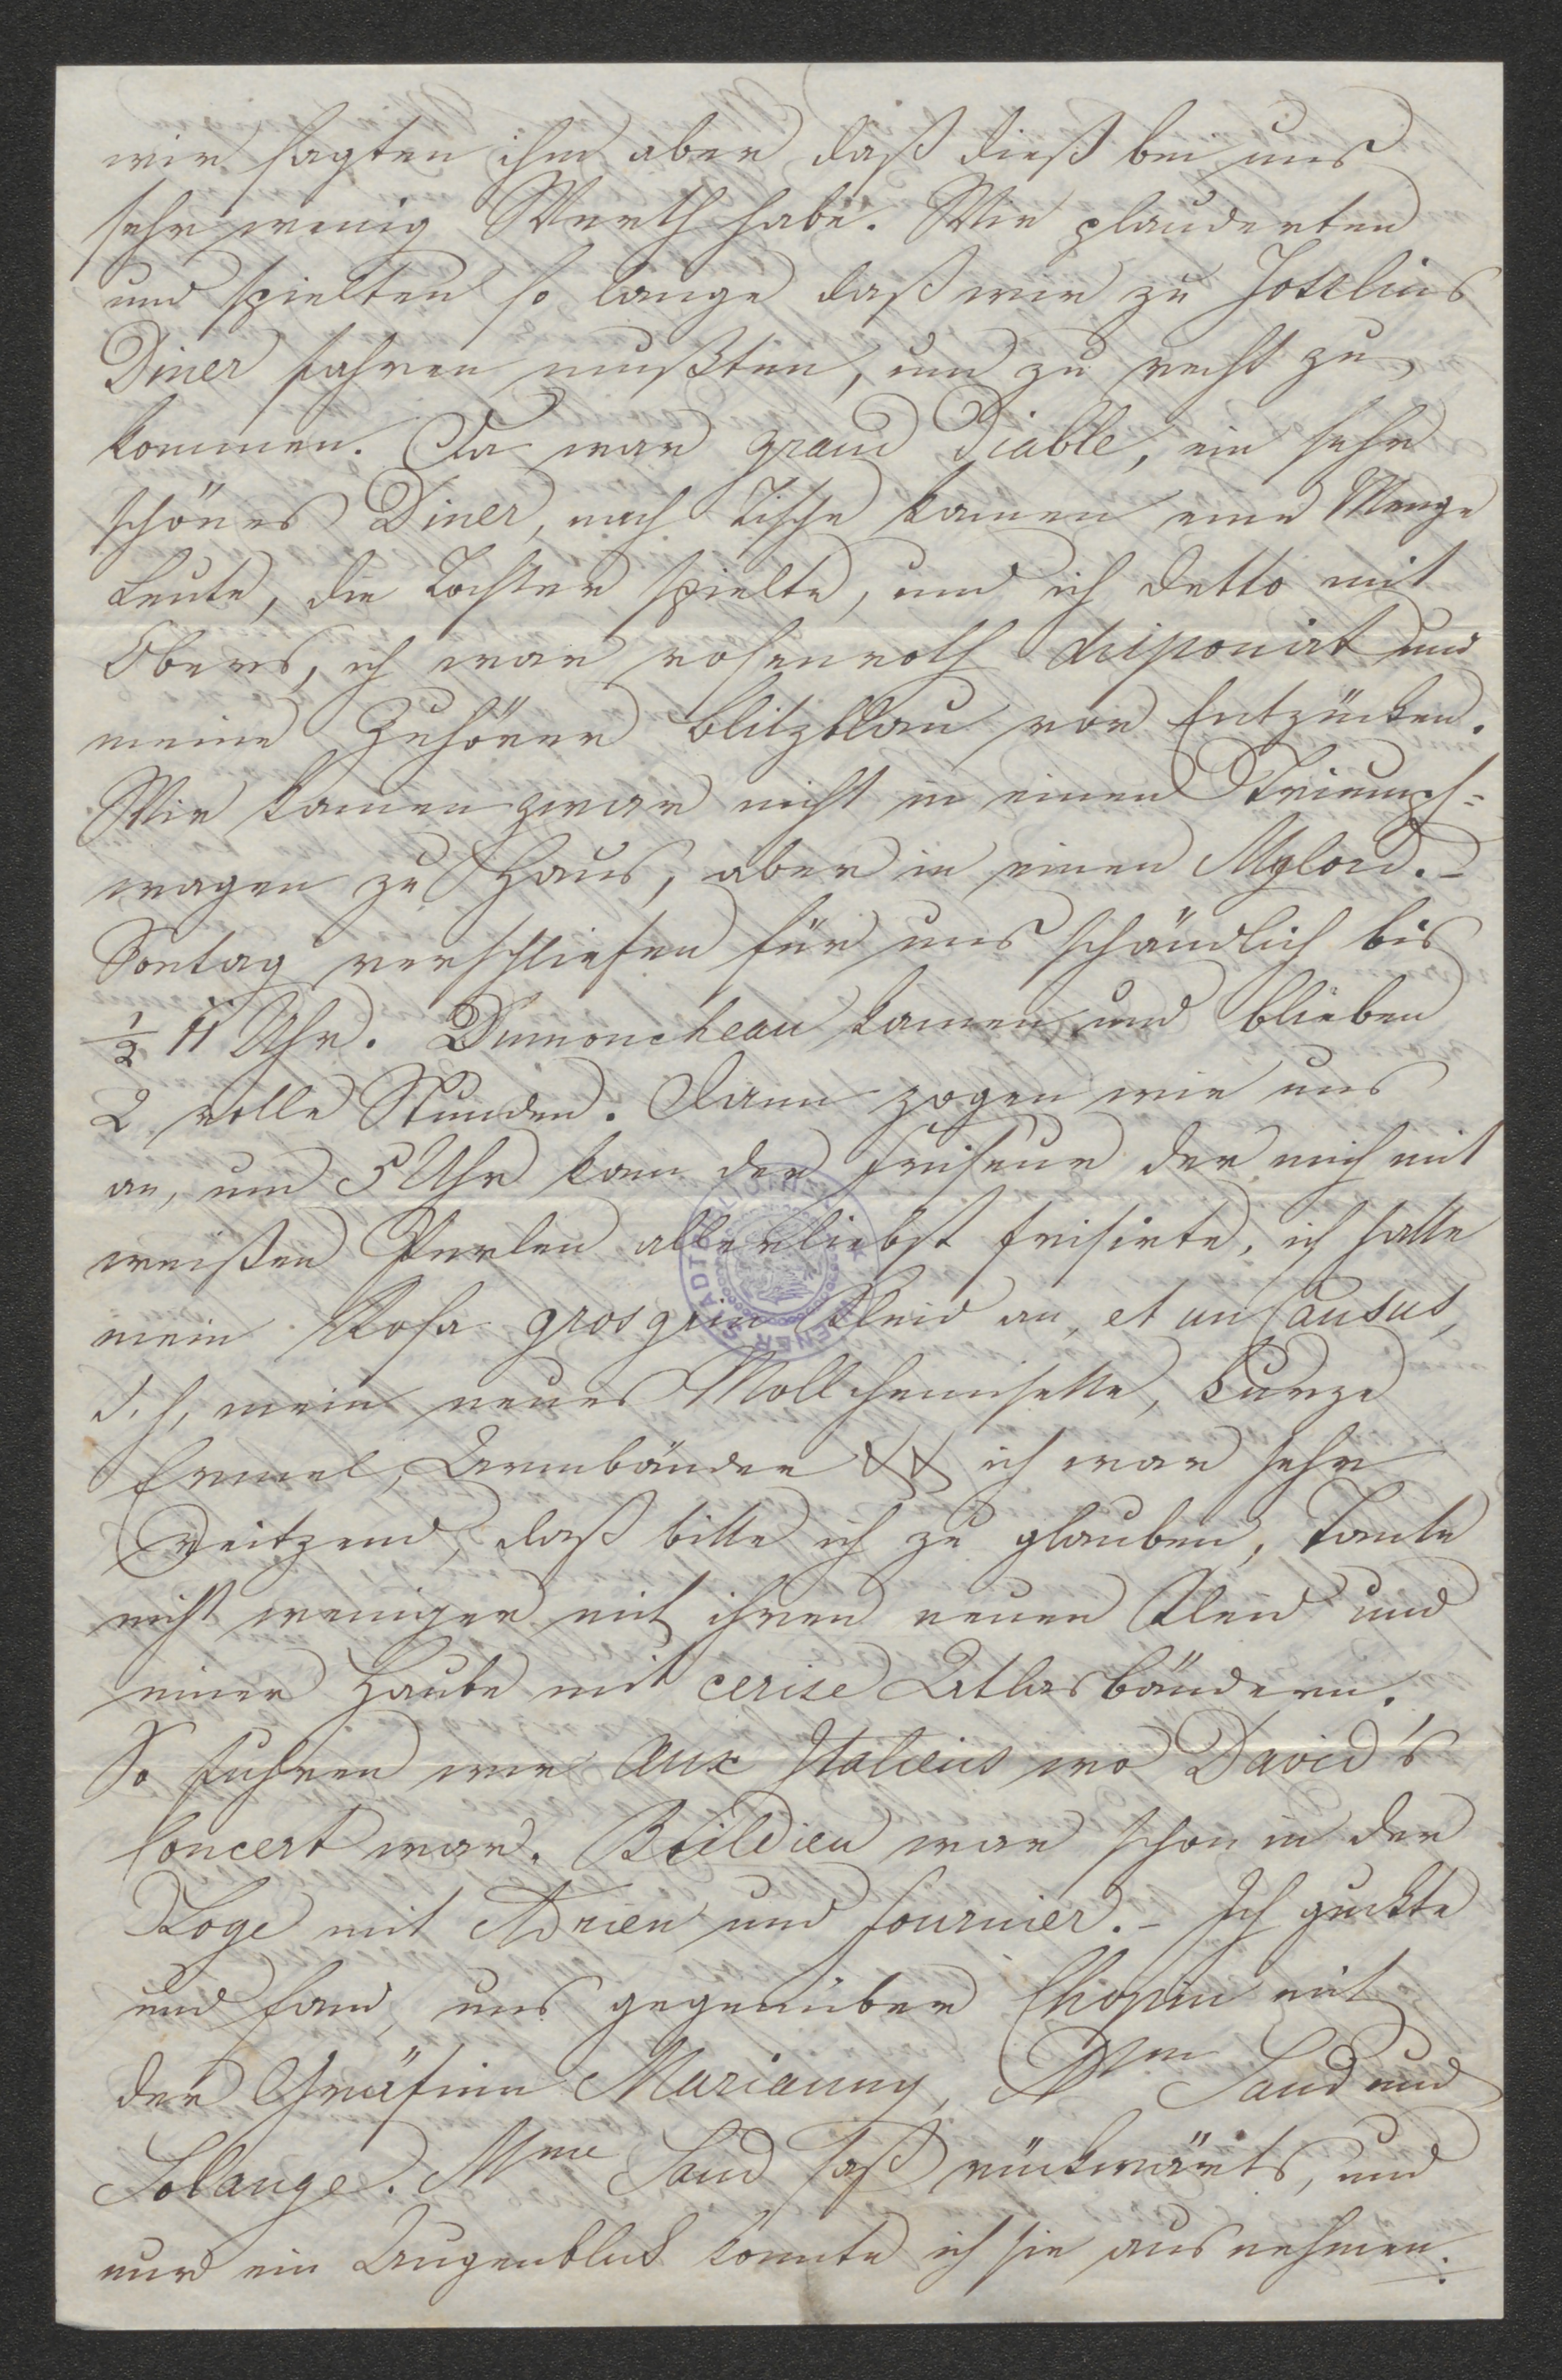 wir sagten ihm aber daß dieß bei uns
sehr wenig Werth habe. Wir plauderten
und spielten so lange daß wir zu Josselins
Diner fahren mußten, um zu recht zu
kommen. Da war grand Diable, ein sehr
schönes Diner, nach Tische kamen eine Menge
Leute, die Tochter spielte, und ich detto mit
Obers, ich war rosenroth disponirt und
meine Zuhörer blitzblau vor Entzücken.
Wir kamen zwar nicht in einen Triumph=
wagen zu Haus, aber in einen Mylord. –
Sontag verschliefen für uns schändlich bis
½ 11 Uhr. Dumoncheau kamen und blieben
2 volle Stunden. Dann zogen wir uns
an, um 5 Uhr kam der Friseur der mich mit
weißen Perlen allerliebst frisirte, ich hatte
mein Rosa grosgrin Kleid an, et un Causus,
d. h, mein neues Mollchemisette, kurze
Ermel, Armbänder && ich war sehr
reitzend, daß bitte ich zu glauben, Tante
nicht weniger mit ihren neuen Kleid und
einer Haube mit cerise Atlasbändern.
So fuhren wir aux Italiens wo David's
Concert war. Boildieu war schon in der
Loge mit Adrien und Fournier. – Ich guckte
und fand, uns gegenüber Chopin mit
der Gräfinn Marianny, Mme Sand und
Solange. Mme Sand saß rückwärts, und
nur ein Augenblick konnte ich sie ausnehmen.
WIENER STADTBIBLIOTHEK